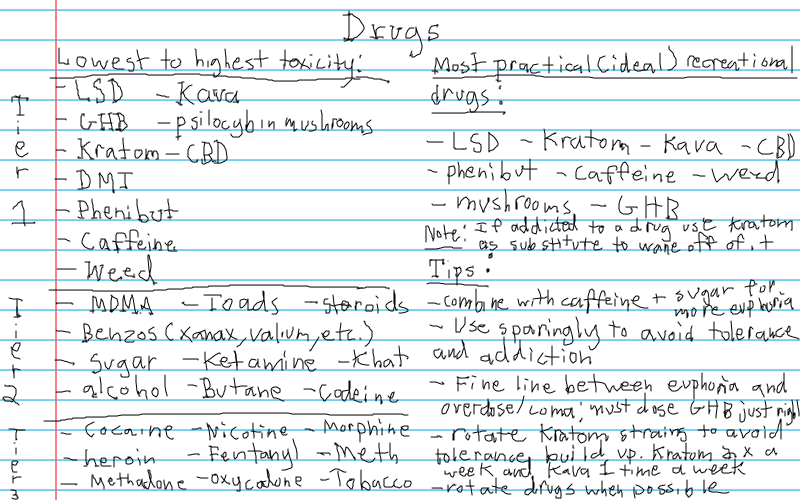 Drugs
Lowest to highest toxicity:
Tier 1
- LSD - Kava
- GHB - psilocybin mushrooms
- Kratom - CBD
- DMT
- Phenibut
- Caffeine
- Weed
Tier 2
- MDMA - Toads - steroids
- Benzos (xanax, valium, etc.)
- Sugar - Ketamine - Khat
- alcohol - Butane - Codeine
Tier 3
- Cocaine - Nicotine - Morphine
- heroin - Fentanyl - Meth
- Methadone - oxycodone - Tobacco
Most practical (ideal) recreational
drugs:
- LSD - Kratom - Kava - CBD
- phenibut - Caffeine - weed
- mushrooms - GHB
Note: If addicted to a drug use Kratom
as substitute to wane off of it
Tips:
- combine with caffeine + sugar for
more euphoria
- Use sparingly to avoid tolerance
and addiction
- Fine line between euphoria and
overdose/coma; must dose GHB just right
- rotate Kratom strains to avoid
tolerance build up. Kratom 2x a
week and Kava 1 time a week
- rotate drugs when possible